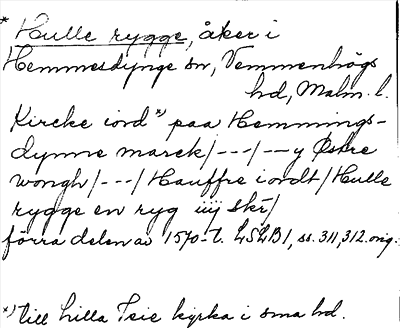 * Hulle rygge, åker i
Hemmesdynge sn, Vemmenhögs
hd, Malm. l.
Kircke iord *) paa Hemmings-
dynne marck/---/--y Østre
wongh/---/Hauffre iordt/Hulle
rygge en ryg iiij skr/
förra delen av 1570-t. LSLB1, ss. 311, 312. orig.
*) till Lilla Isie kyrka i sma hd.